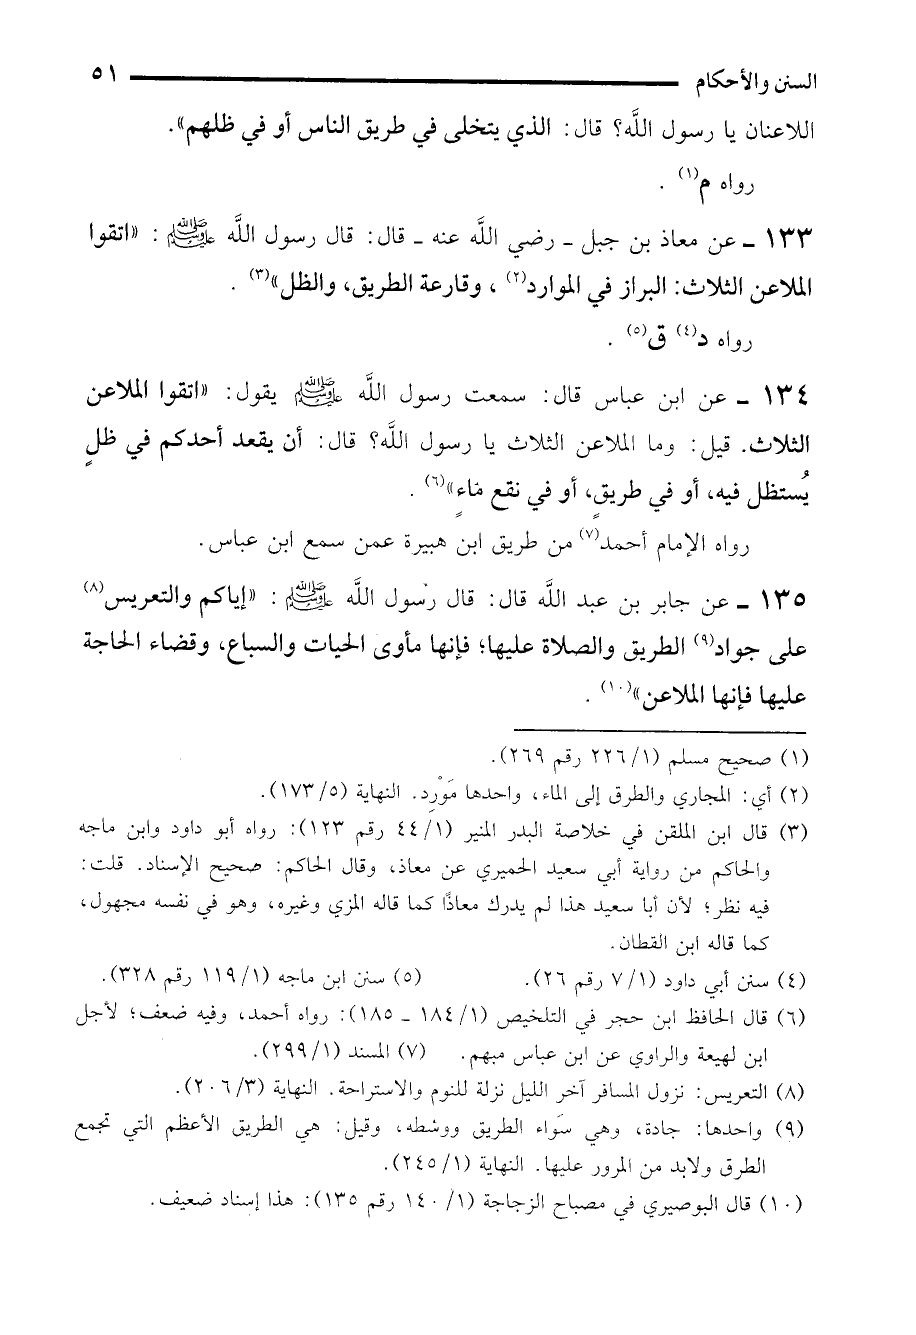 السنن والأحكام ٥١
اللاعنان يا رسول اللَّه؟ قال: الذي يتخلى في طريق الناس أو في ظلهم».
رواه م(١) .
١٣٣ ـ عن معاذ بن جبل ـ رضي اللَّه عنه ـ قال: قال رسول اللَّه ﷺ : «اتقوا
الملاعن الثلاث: البراز في الموارد(٢) ، وقارعة الطريق، والظل»(٣) .
رواه د(٤) ق(٥) .
١٣٤ ـ عن ابن عباس قال: سمعت رسول اللَّه ﷺ يقول: «اتقوا الملاعن
الثلاث. قيل: وما الملاعن الثلاث يا رسول اللَّه؟ قال: أن يقعد أحدكم في ظلٍ
يُستظل فيه، أو في طريقٍ، أو في نقع ماءٍ»(٦) .
رواه الإمام أحمد(٧) من طريق ابن هبيرة عمن سمع ابن عباس.
١٣٥ ـ عن جابر بن عبد اللَّه قال: قال رسول اللَّه ﷺ : «إياكم والتعريس(٨)
على جواد(٩) الطريق والصلاة عليها؛ فإنها مأوى الحيات والسباع، وقضاء الحاجة
عليها فإنها الملاعن»(١٠) .
(١) صحيح مسلم (١/ ٢٢٦ رقم ٢٦٩).
(٢) أي: المجاري والطرق إلى الماء، واحدها مَوْرِد. النهاية (٥/ ١٧٣).
(٣) قال ابن الملقن في خلاصة البدر المنير (١/ ٤٤ رقم ١٢٣): رواه أبو داود وابن ماجه
والحاكم من رواية أبي سعيد الحميري عن معاذ، وقال الحاكم: صحيح الإسناد. قلت:
فيه نظر؛ لأن أبا سعيد هذا لم يدرك معاذًا كما قاله المزي وغيره، وهو في نفسه مجهول،
كما قاله ابن القطان.
(٤) سنن أبي داود (١/ ٧ رقم ٢٦). (٥) سنن ابن ماجه (١/ ١١٩ رقم ٣٢٨).
(٦) قال الحافظ ابن حجر في التلخيص (١/ ١٨٤ ـ ١٨٥): رواه أحمد، وفيه ضعف؛ لأجل
ابن لهيعة والراوي عن ابن عباس مبهم. (٧) المسند (١/ ٢٩٩).
(٨) التعريس: نزول المسافر آخر الليل نزلة للنوم والاستراحة. النهاية (٣/ ٢٠٦).
(٩) واحدها: جادة، وهي سَواء الطريق ووسْطه، وقيل: هي الطريق الأعظم التي تجمع
الطرق ولابد من المرور عليها. النهاية (١/ ٢٤٥).
(١٠) قال البوصيري في مصباح الزجاجة (١/ ١٤٠ رقم ١٣٥): هذا إسناد ضعيف.